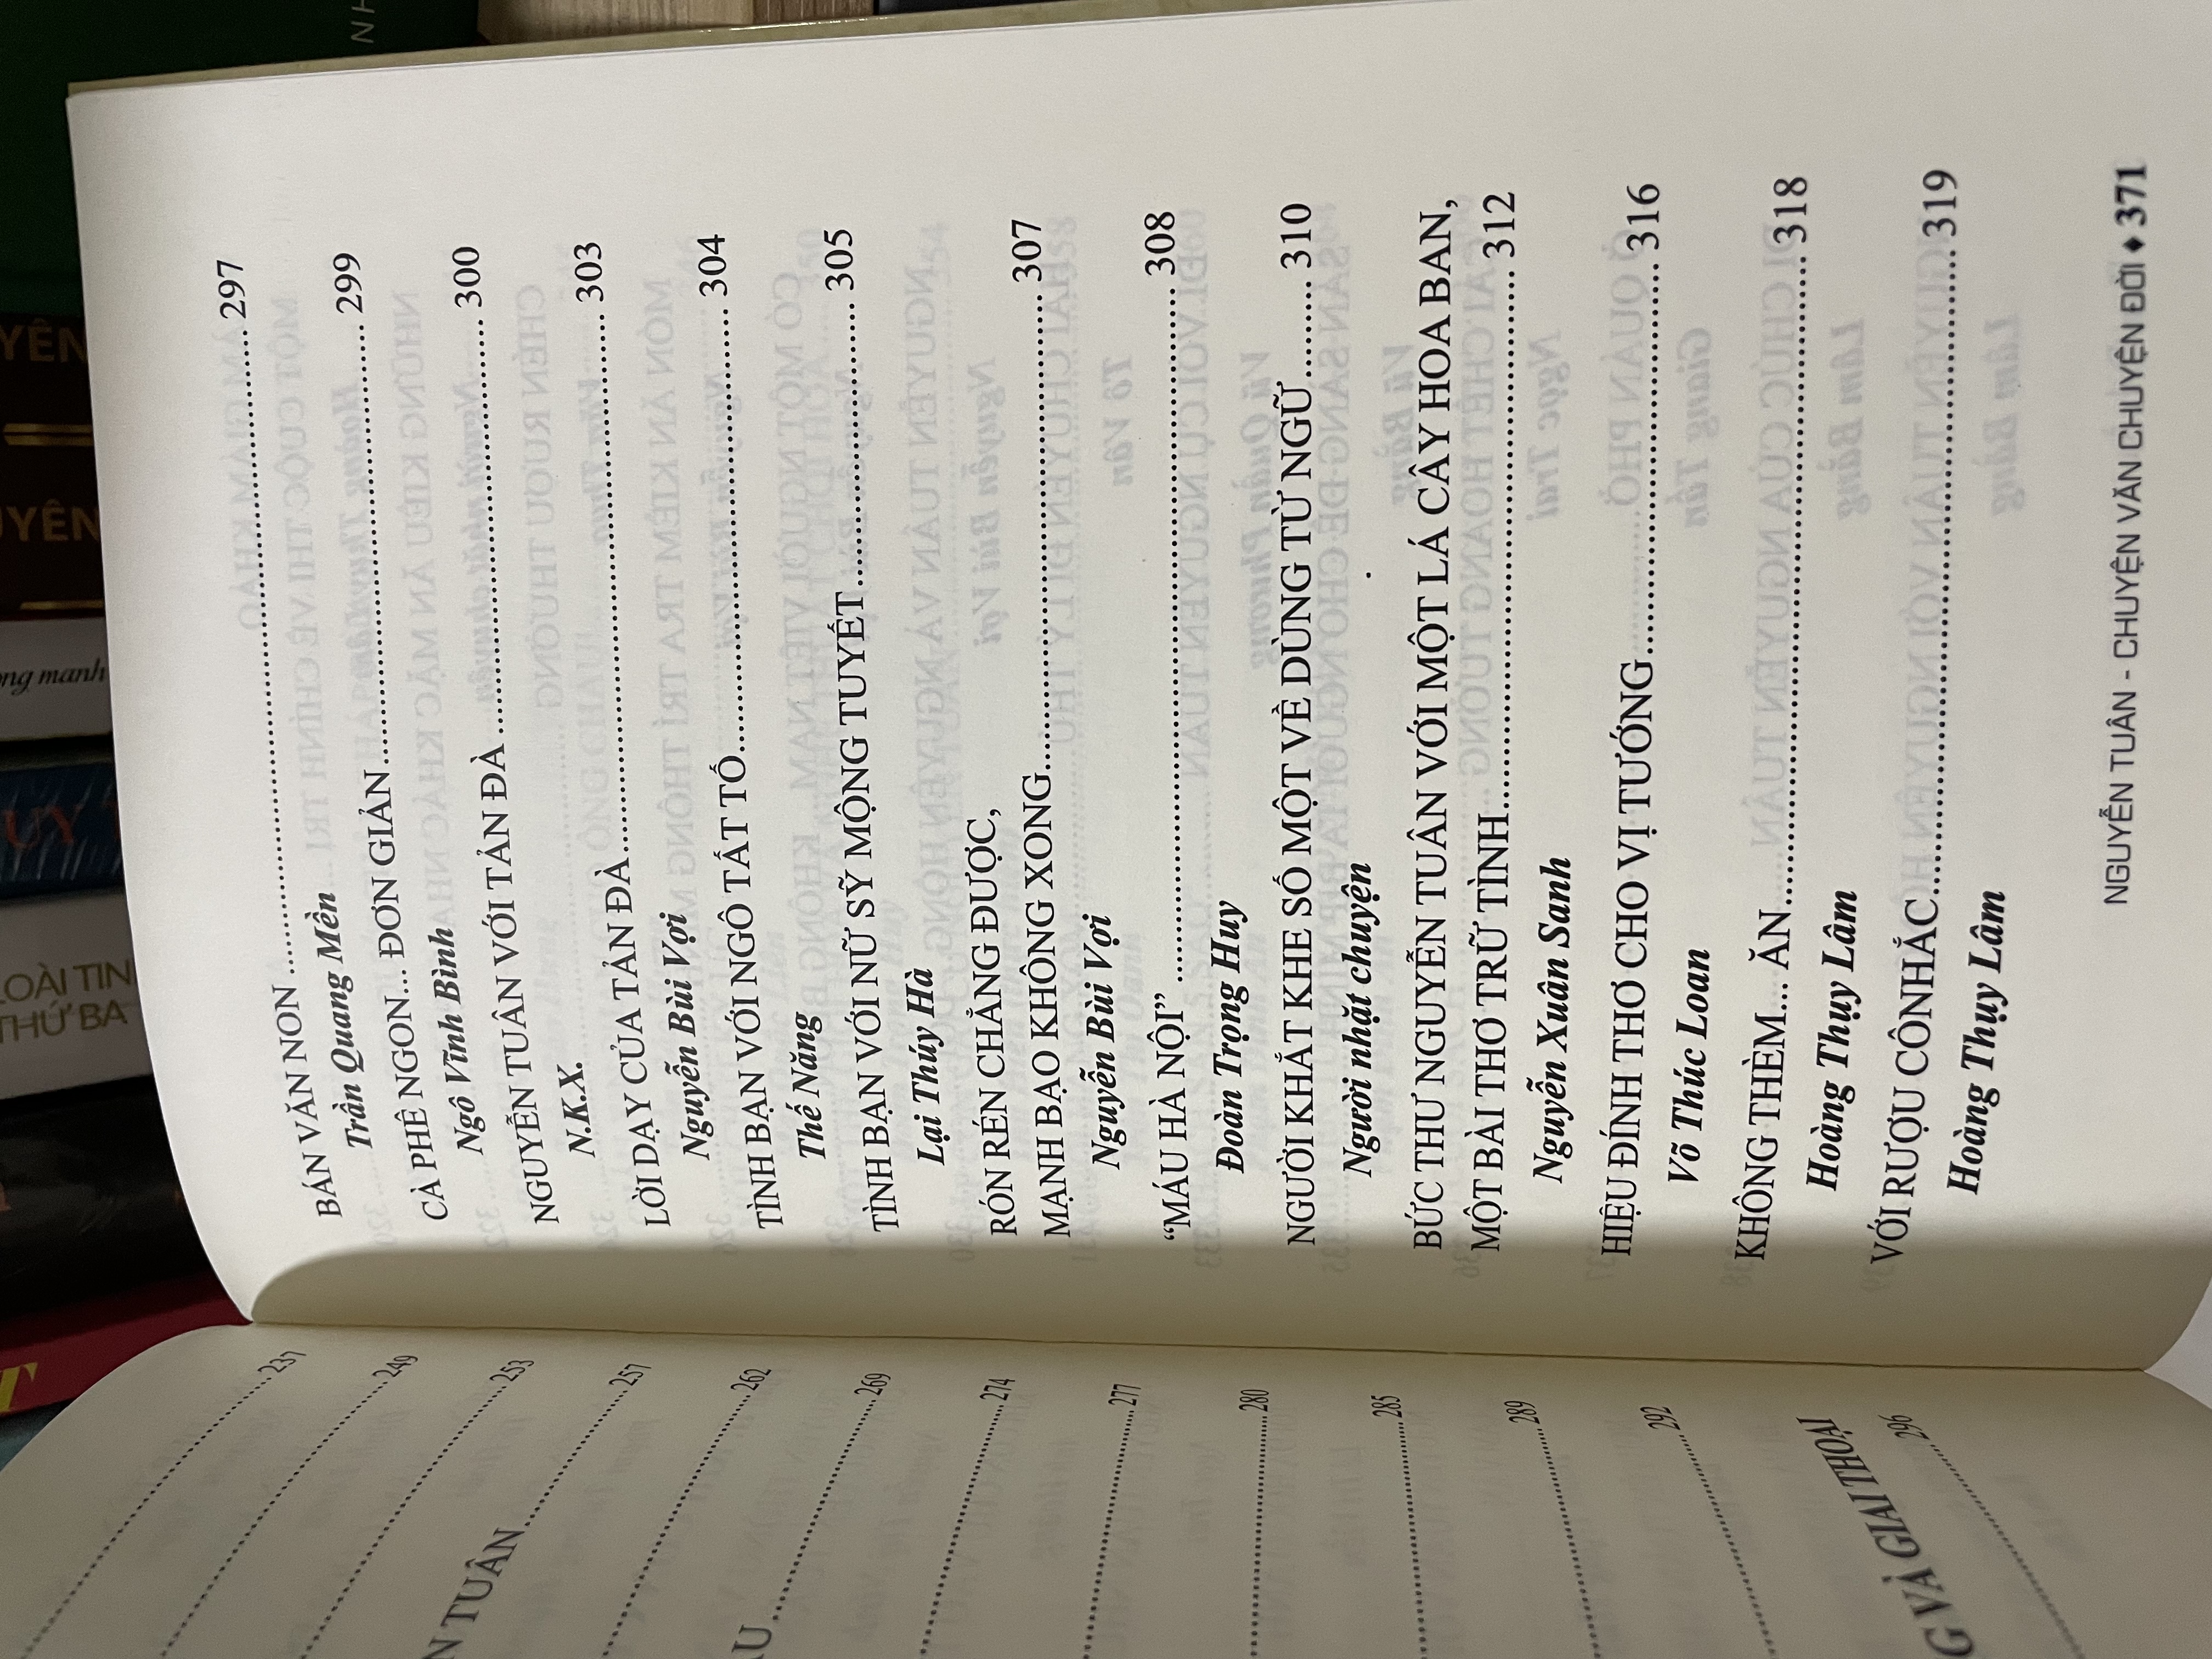 BÁN VĂN NON ........ 297
Trần Quang Mền
CÀ PHÊ NGON... ĐƠN GIẢN........ 299
Ngô Vĩnh Bình
NGUYỄN TUÂN VỚI TẢN ĐÀ........ 300
N.K.X.
LỜI DẠY CỦA TẢN ĐÀ........ 303
Nguyễn Bùi Vợi
TÌNH BẠN VỚI NGÔ TẤT TỐ........ 304
Thế Năng
TÌNH BẠN VỚI NỮ SỸ MỘNG TUYẾT ........ 305
Lại Thúy Hà
RÓN RÉN CHẲNG ĐƯỢC,
MẠNH BẠO KHÔNG XONG........ 307
Nguyễn Bùi Vợi
“MÁU HÀ NỘI” ........ 308
Đoàn Trọng Huy
NGƯỜI KHẮT KHE SỐ MỘT VỀ DÙNG TỪ NGỮ ........ 310
Người nhặt chuyện
BỨC THƯ NGUYỄN TUÂN VỚI MỘT LÁ CÂY HOA BAN,
MỘT BÀI THƠ TRỮ TÌNH........ 312
Nguyễn Xuân Sanh
HIỆU ĐÍNH THƠ CHO VỊ TƯỚNG........ 316
Võ Thúc Loan
KHÔNG THÈM... ĂN........ 318
Hoàng Thụy Lâm
VỚI RƯỢU CÔNHẮC........ 319
Hoàng Thụy Lâm
NGUYỄN TUÂN - CHUYỆN VĂN CHUYỆN ĐỜI ♦ 371
........ 237
........ 249
........ 253
N TUÂN ........ 257
........ 262
U ........ 269
........ 274
........ 277
........ 280
........ 285
........ 289
........ 292
G VÀ GIAI THOẠI
........ 296
YÊN
UYÊN
ong manh
UY
LOÀI TIN
THỨ BA
T